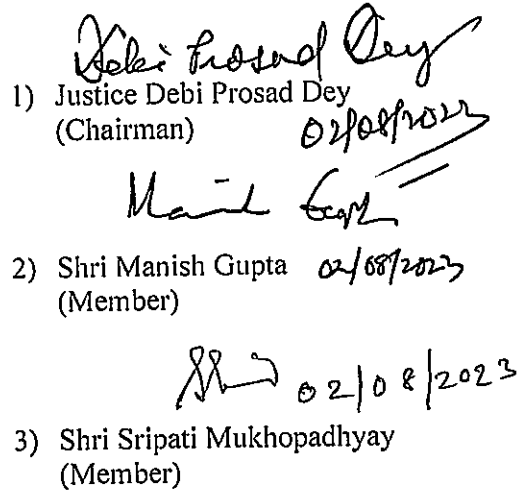 Debi Prosad Dey
1) Justice Debi Prosad Dey
(Chairman) 02/08/2023
Manish Gupta
2) Shri Manish Gupta 02/08/2023
(Member)
02/08/2023
3) Shri Sripati Mukhopadhyay
(Member)